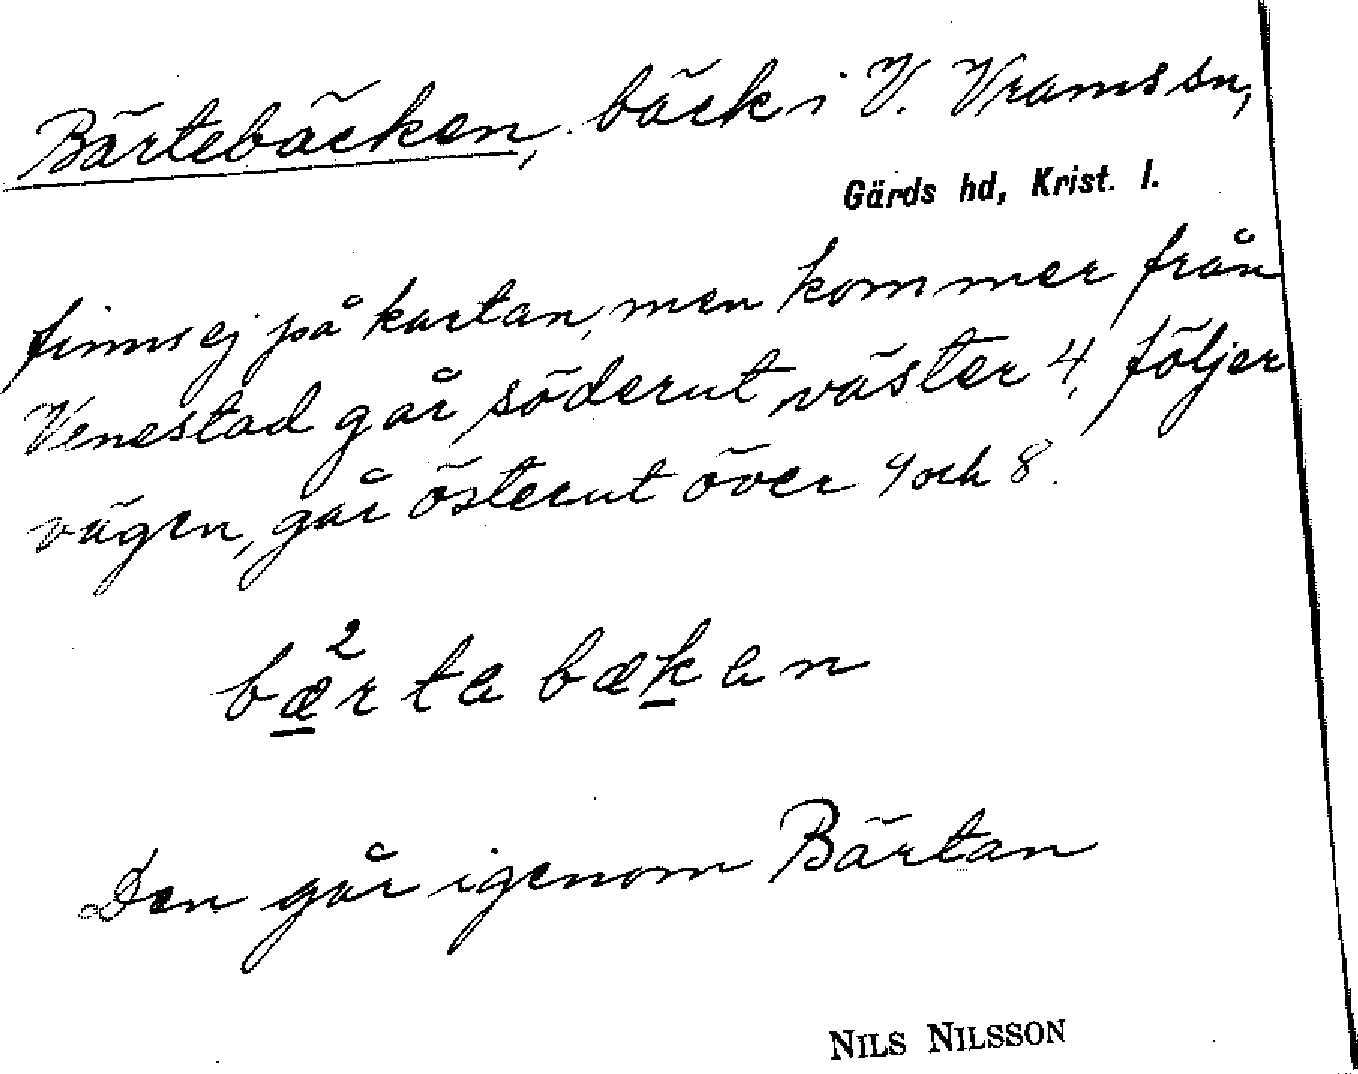 Bärtebäcken, bäck i V. Vramssn,
Gärds hd, Krist. l.
finns ej på kartan, men kommer från
Venestad går söderut, väster 4, följer
vägen, går österut över 9 och 8.
bærtabækan
Den går igenom Bärtan
NILS NILSSON